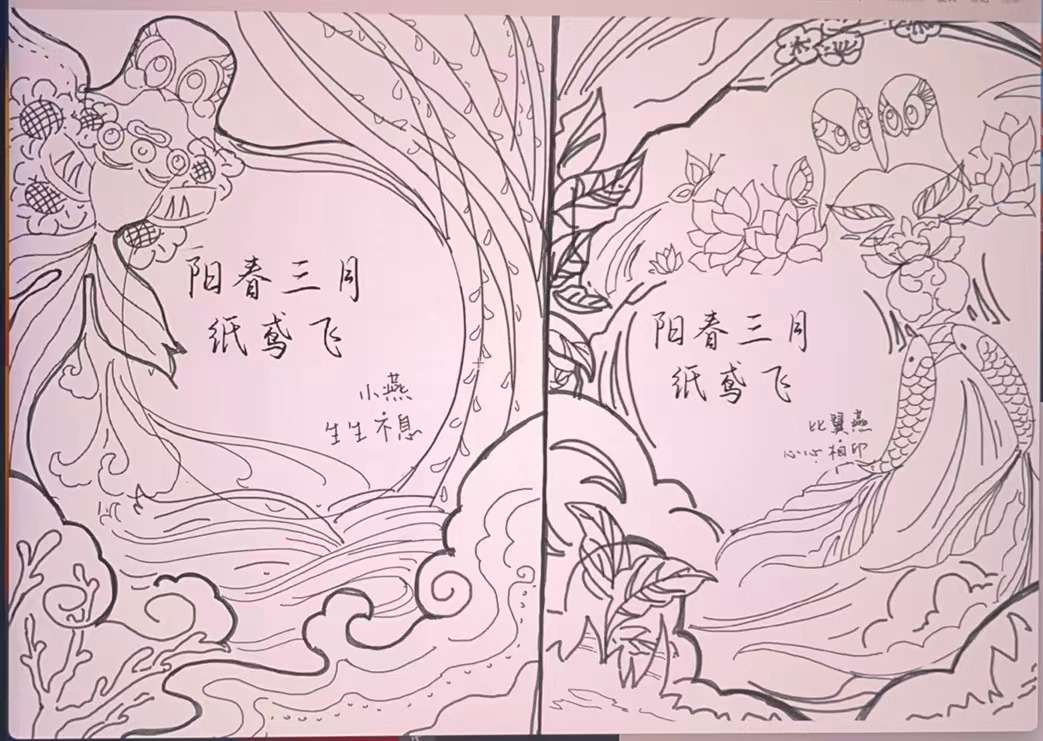 阳春三月
纸鸢飞
小燕
生生不息
阳春三月
纸鸢飞
比翼燕
心心相印